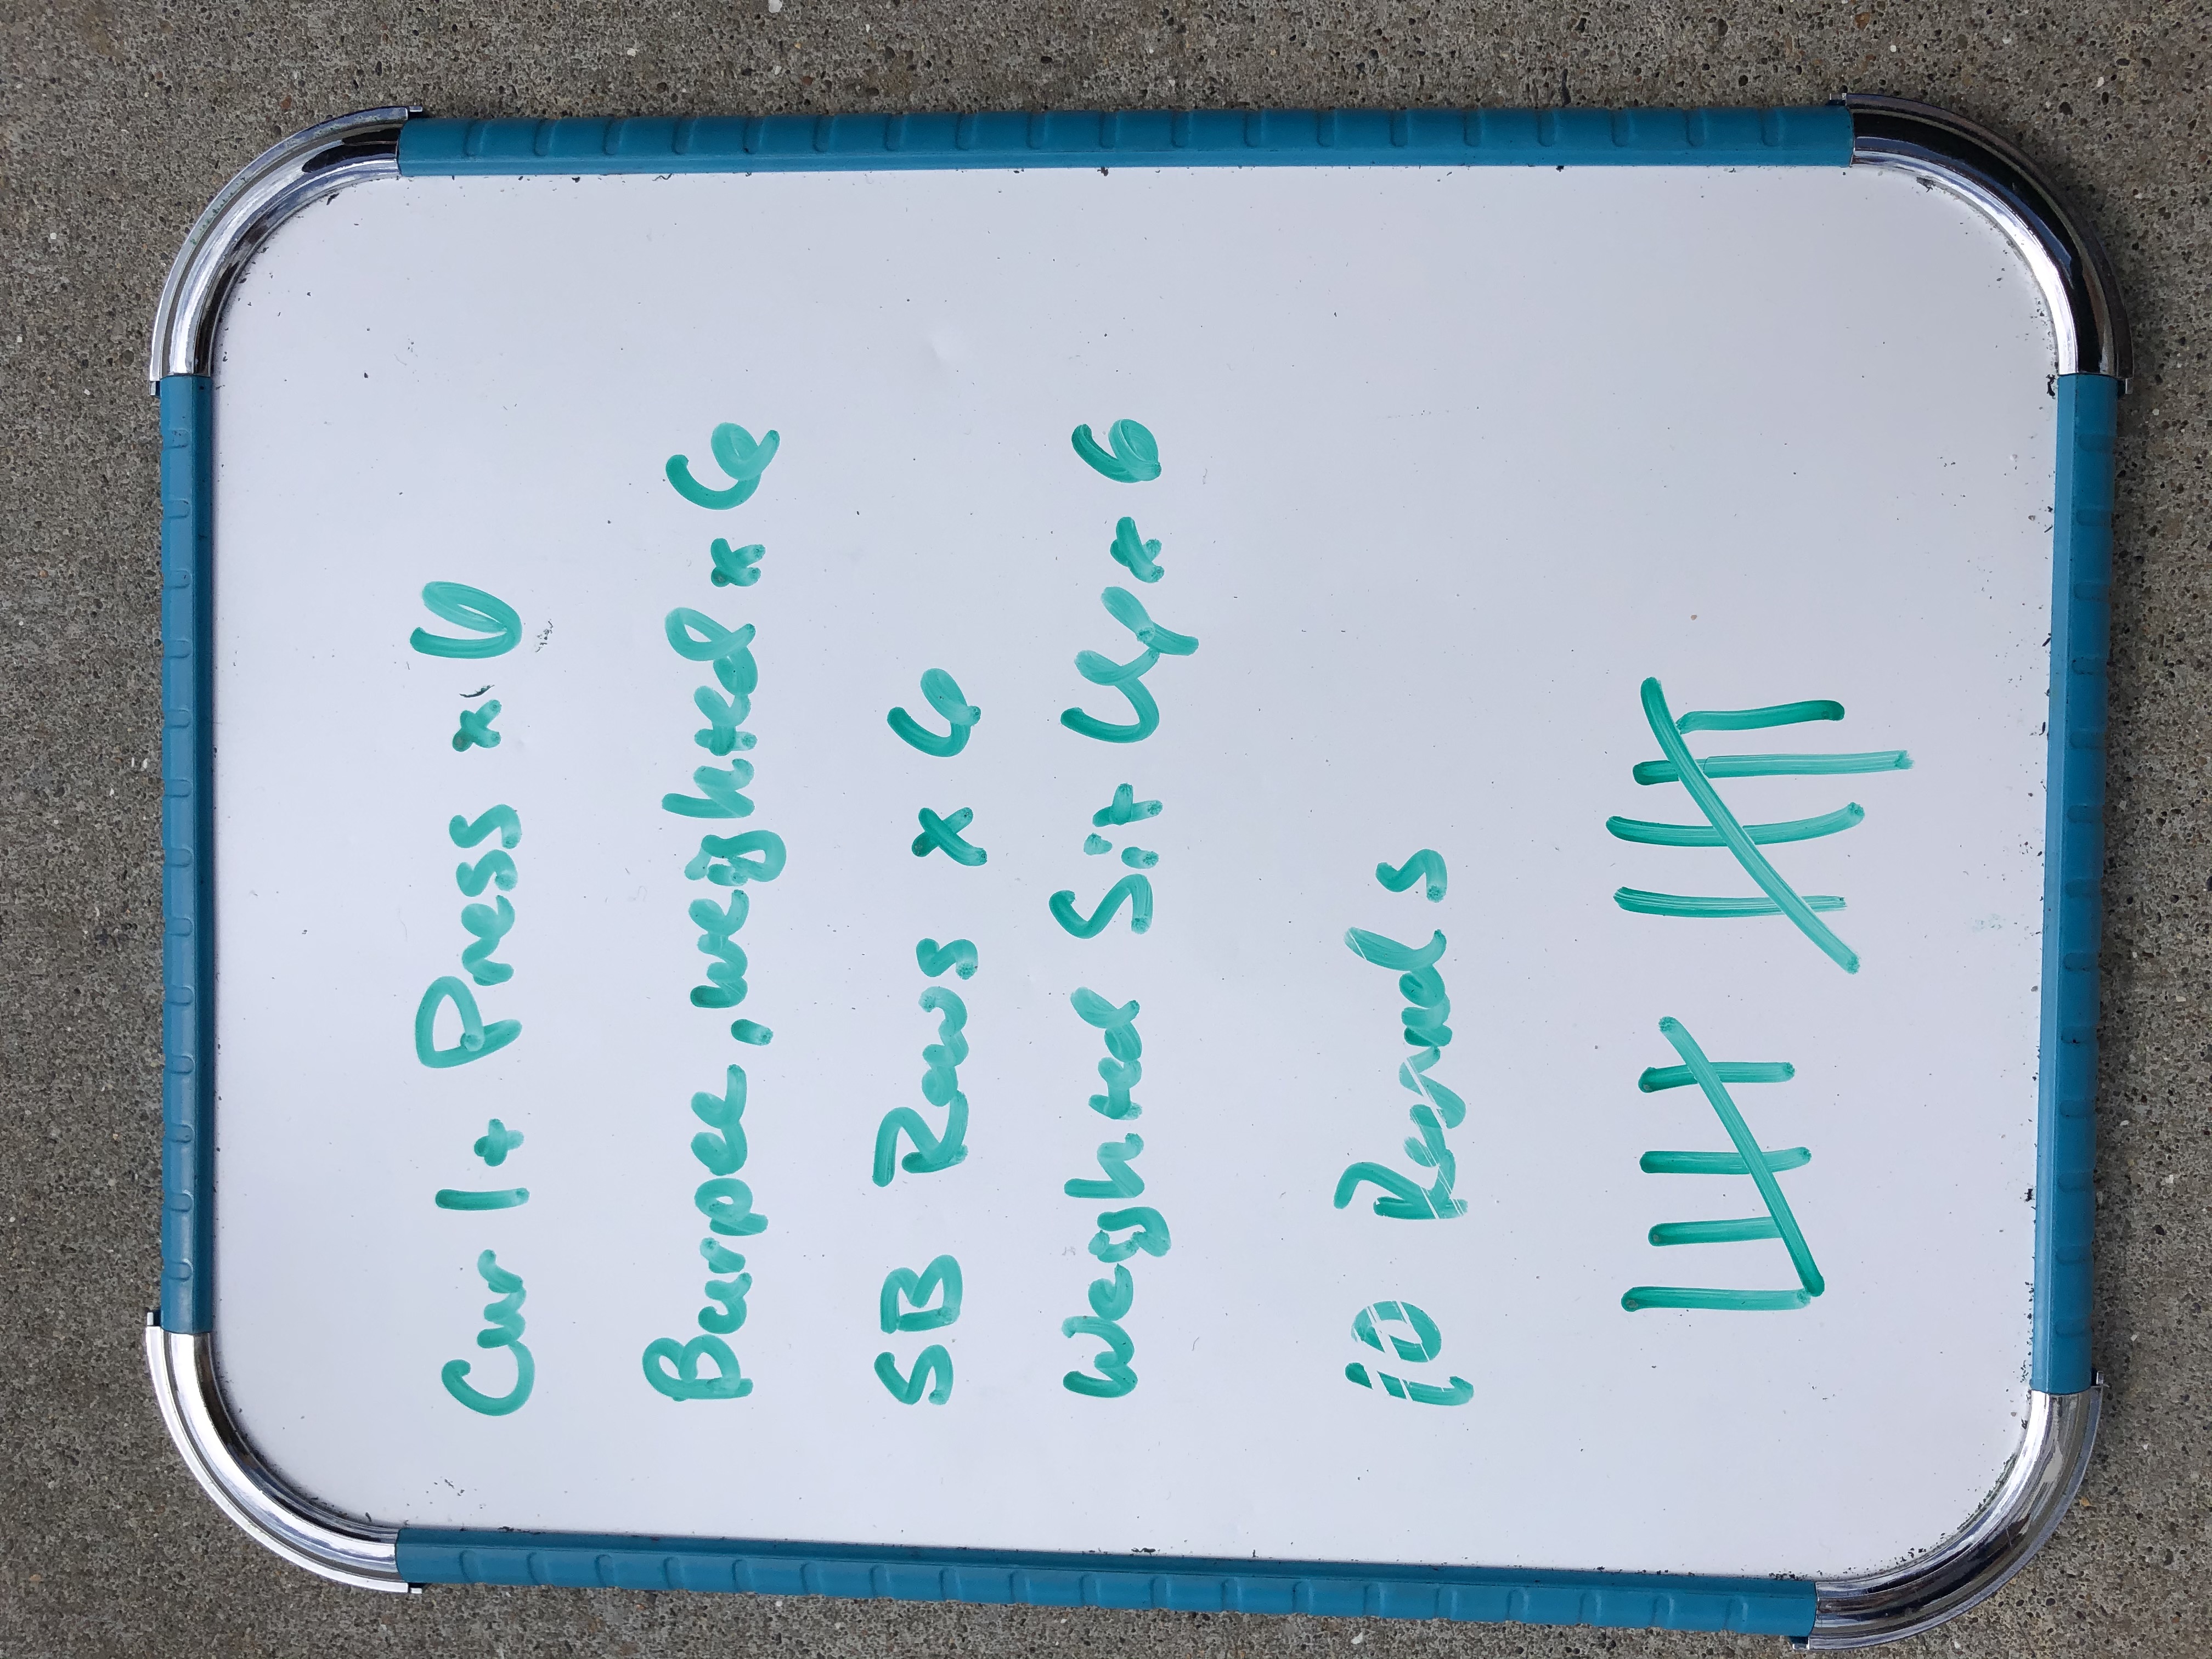 Curl + Press x 6
Burpee, weighted x 6
SB Rows x 6
Weighted Sit Up x 6
10 Rounds